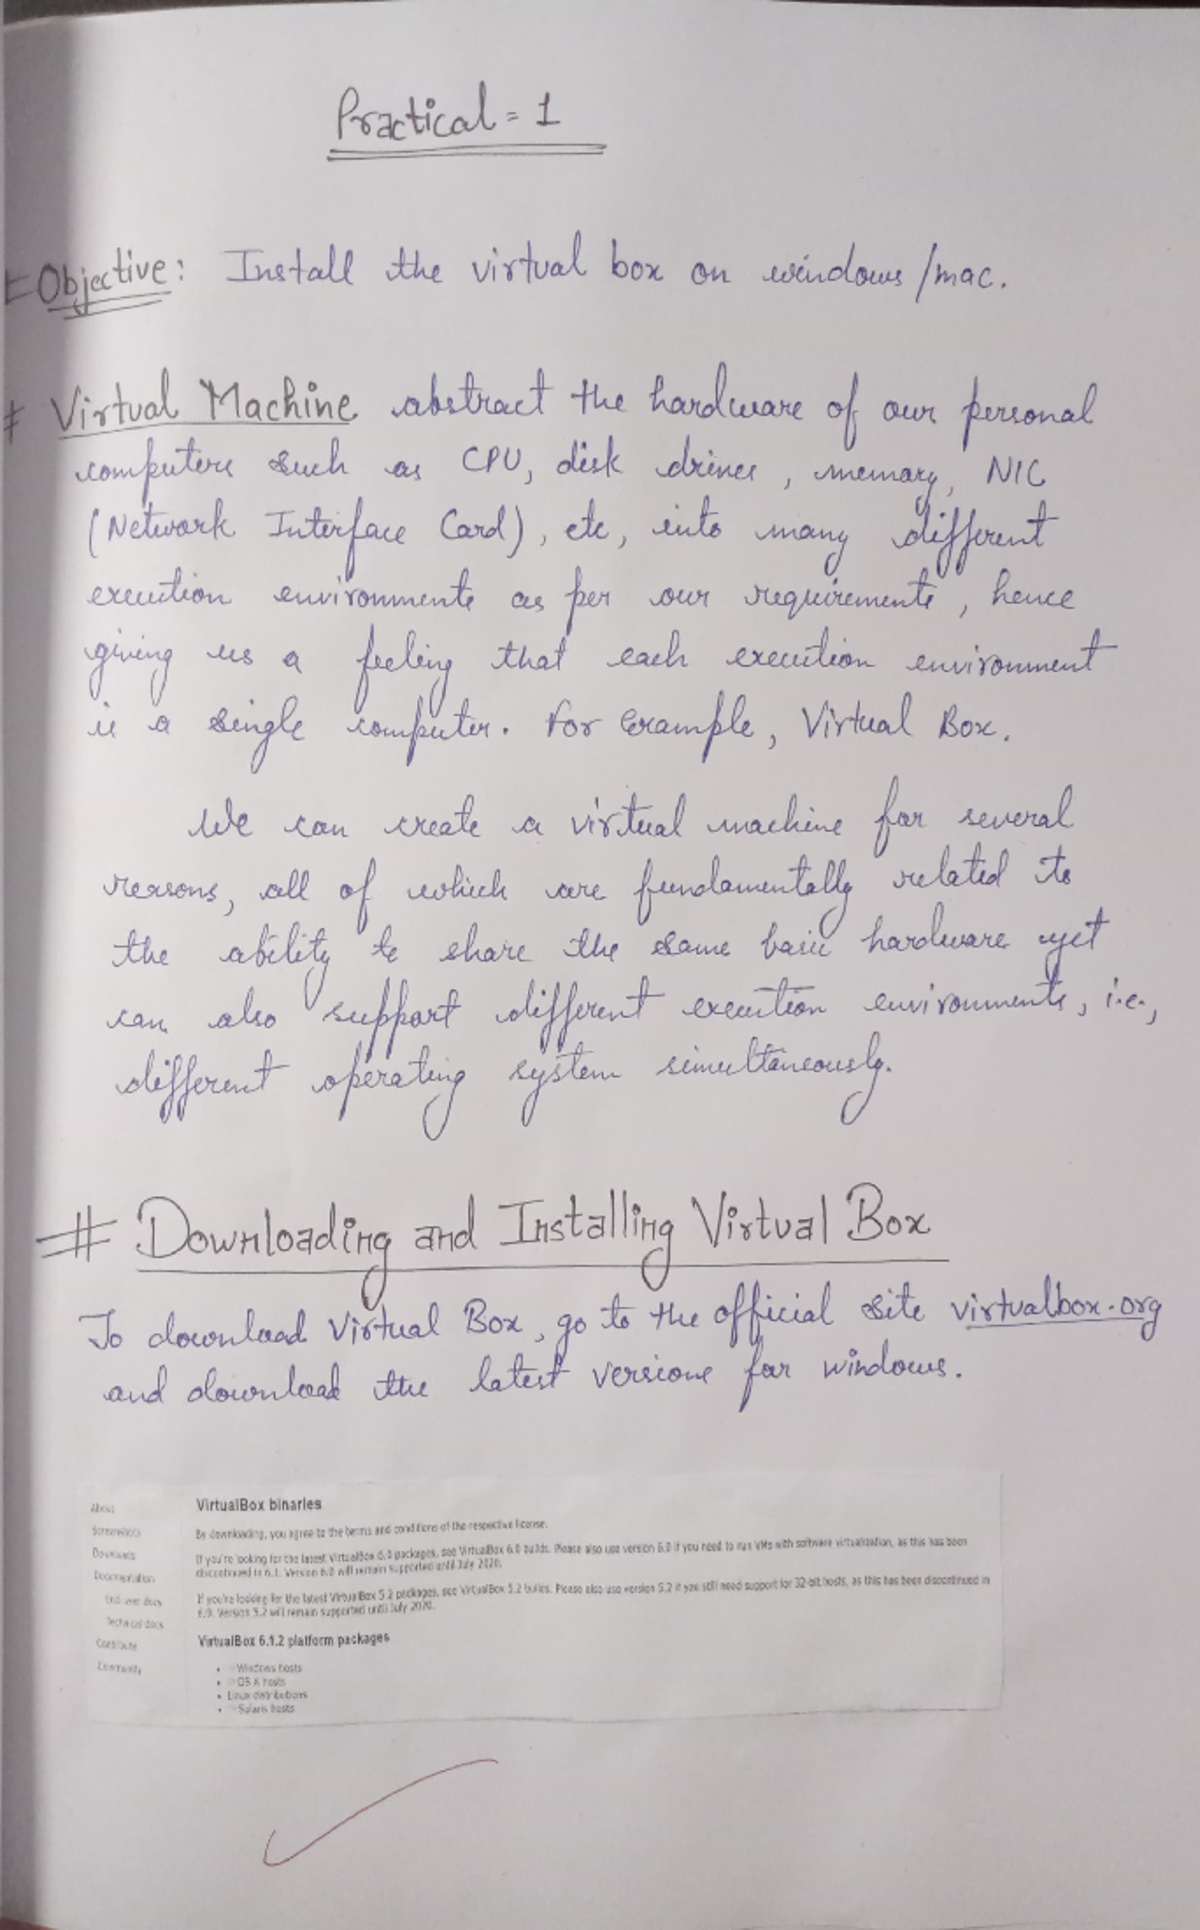 Practical = 1
Objective: Install the virtual box on windows/mac.
# Virtual Machine abstract the hardware of our personal
computers such as CPU, disk drives, memory, NIC
(Network Interface Card), etc, into many different
execution environments as per our requirements, hence
giving us a feeling that each execution environment
is a single computer. For Example, Virtual Box.
We can create a virtual machine for several
reasons, all of which are fundamentally related to
the ability to share the same basic hardware yet
can also support different execution environments, i.e.,
different operating system simultaneously.
# Downloading and Installing Virtual Box
To download Virtual Box, go to the official site virtualbox.org
and download the latest versions for windows.
About
Screenshots
Downloads
Documentation
End-user docs
Technical docs
Contribute
Community
VirtualBox binaries
By downloading, you agree to the terms and conditions of the respective license.
If you're looking for the latest VirtualBox 6.0 packages, see VirtualBox 6.0 builds. Please also use version 6.0 if you need to run VMs with software virtualization, as this has been
discontinued in 6.1. Version 6.0 will remain supported until July 2020.
If you're looking for the latest VirtualBox 5.2 packages, see VirtualBox 5.2 builds. Please also use version 5.2 if you still need support for 32-bit hosts, as this has been discontinued in
6.0. Version 5.2 will remain supported until July 2020.
VirtualBox 6.1.2 platform packages
• Windows hosts
• OS X hosts
• Linux distributions
• Solaris hosts